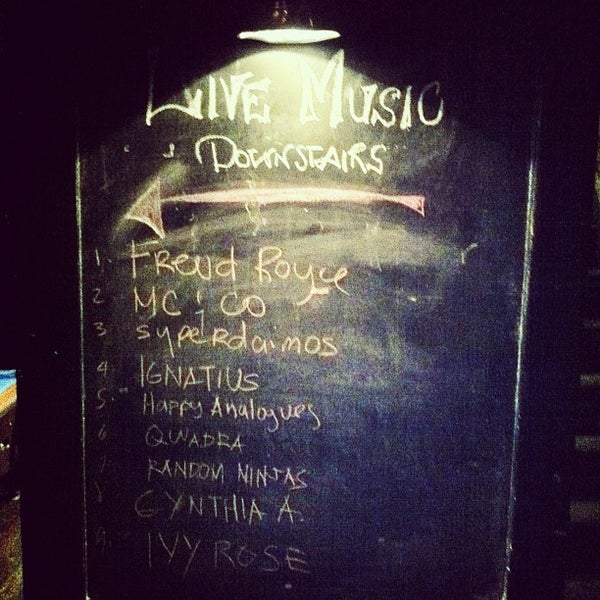 LIVE MUSIC
DOWNSTAIRS
1. Freud Royce
2 MC; CO
3 syperdaimos
4. IGNATIUS
5. Happy Analogues
6 QWADRA
7. RANDOM NINJAS
8 CYNTHIA A.
9. IVY ROSE